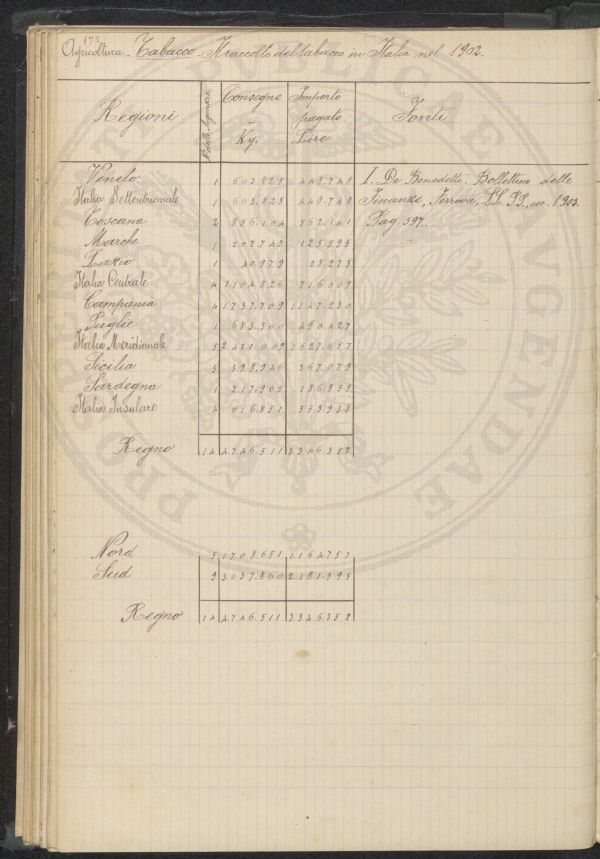 173
Agricoltura - Tabacco. Il raccolto del tabacco in Italia nel 1902.
Regioni N. delle Agenzie Consegne - Kg. Importo pagato Lire Fonti
Veneto 1 603.825 448.748 I. De Benedetti. Bollettino delle
Italia Settentrionale 1 603.825 448.748 Finanze, Ferrovie, LL. PP., ecc. 1903.
Toscana 2 856.104 562.141 Pag. 397.
Marche 1 207.743 125.595
Lazio 1 40.979 28.273
Italia Centrale 4 1104.826 716.009
Campania 4 1737.709 1147.230
Puglie 1 683.300 480.427
Italia Meridionale 5 2.421.009 1627.657
Sicilia 3 398.946 367.079
Sardegna 1 217.905 186.859
Italia Insulare 4 616.851 553.938
Regno 14 4746.511 3346.352
Nord 5 1708.651 1164757
Sud 9 3037.860 2181.595
Regno 14 4746.511 3346.352